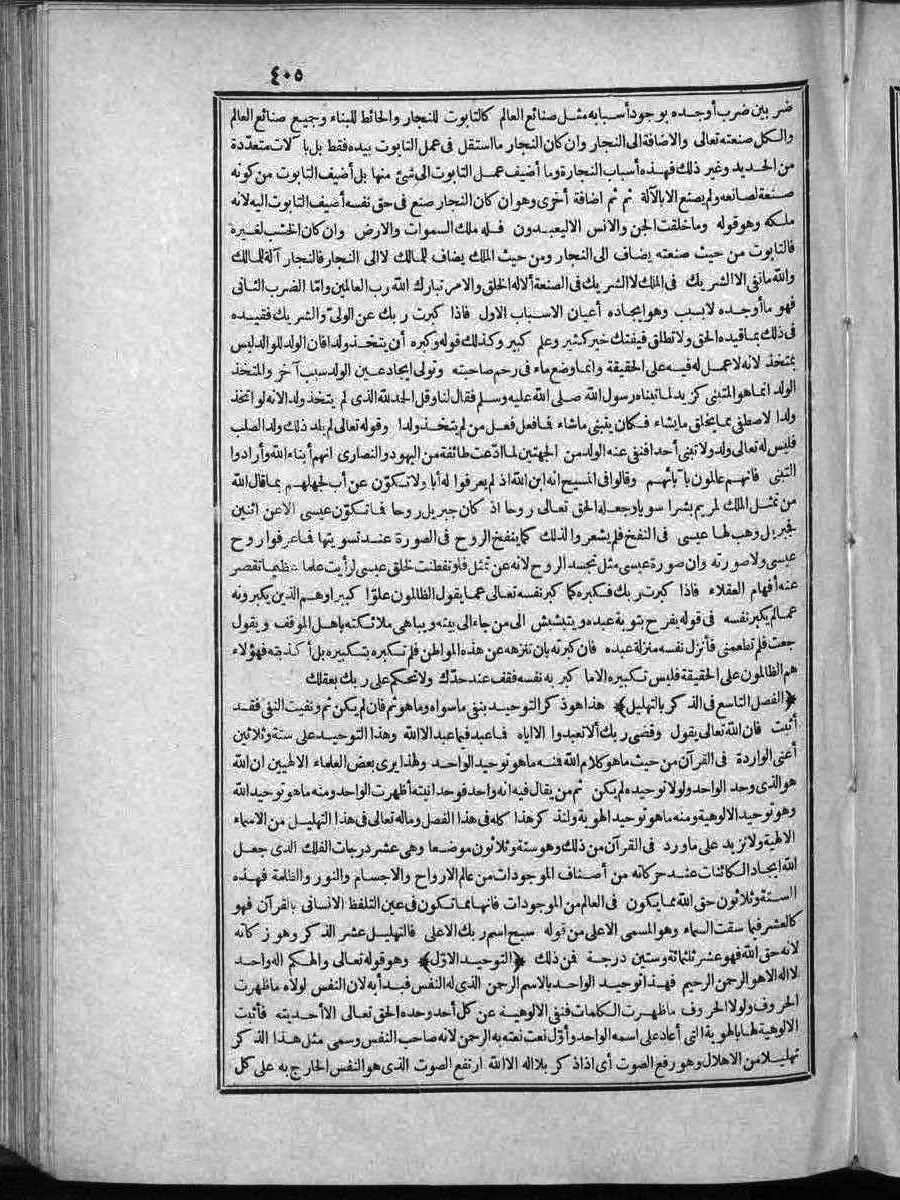 ٤٠٥
ضربين ضرب أوجده بوجود أسبابه مثل صنائع العالم كالتابوت للنجار والحائط للبناء وجميع صنائع العالم
والكل صنعته تعالى والاضافة الى النجار وان كان النجار ما استقل فى عمل التابوت بيده فقط بل بآلات متعددة
من الحديد وغير ذلك فهذه أسباب النجارة وما أضيف عمل التابوت الى شئ منها بل أضيف التابوت من كونه
صنعة لصانعه ولم يصنع الا بالآلة ثم ثم اضافة أخرى وهو ان كان النجار صنع فى حق نفسه أضيف التابوت اليه لانه
ملكه وهو قوله وما خلقت الجن والانس الا ليعبدون فله ملك السموات والارض وان كان الخشب لغيره
فالتابوت من حيث صنعته يضاف الى النجار ومن حيث الملك يضاف للمالك لا الى النجار فالنجار آلة للمالك
والله ما نفى الا الشريك فى الملك لا الشريك فى الصنعة ألاله الخلق والامر تبارك الله رب العالمين وامّا الضرب الثانى
فهو ما أوجده لا بسبب وهو ايجاده أعيان الاسباب الاول فاذا كبرت ربك عن الولىّ والشريك فقيده
فى ذلك بما قيده الحق ولا تطلق فيفتك خير كثير وعلم كبير وكذلك قوله وكبره أن يتخذ ولدا فان الولد للوالد ليس
بمتخذ لانه لا عمل له فيه على الحقيقة وانما وضع ماء فى رحم صاحبته وتولى ايجاد عين الولد سبب آخر والمتخذ
الولد انما هو المتبنى كزيد لما تبناه رسول الله صلى الله عليه وسلم فقال لنا وقل الحمد لله الذى لم يتخذ ولدا لانه لو اتخذ
ولدا لاصطفى مما يخلق ما يشاء فكان يتبنى ما شاء فما فعل فعل من لم يتخذ ولدا وقوله تعالى لم يلد ذلك ولد الصلب
فليس له تعالى ولد ولا تبنى أحدا فنفى عنه الولد من الجهتين لما ادّعت طائفة من اليهود والنصارى انهم أبناء الله وأرادوا
التبنى فانهم عالمون بآبائهم وقالوا فى المسيح انه ابن الله اذ لم يعرفوا له أبا ولا تكوّن عن أب لجهلهم بما قال الله
من تمثل الملك لمريم بشرا سويا وجعله الحق تعالى روحا اذ كان جبريل روحا فما تكوّن عيسى الا عن اثنين
فجبريل وهب لها عيسى فى النفخ فلم يشعروا لذلك كما ينفخ الروح فى الصورة عند تسويتها فما عرفوا روح
عيسى ولا صورته وان صورة عيسى مثل تجسد الروح لانه عن تمثل فلو تفطنت لخلق عيسى لرأيت علما عظيما تقصر
عنه أفهام العقلاء فاذا كبرت ربك فكبره كما كبر نفسه تعالى عما يقول الظالمون علوّا كبيرا وهم الذين يكبرونه
عما لم يكبر نفسه فى قوله يفرح بتوبة عبده ويتبشش الى من جاء الى بيته ويباهى ملائكته باهل الموقف ويقول
جعت فلم تطعمنى فأنزل نفسه منزلة عبده فان كبرته بان تنزهه عن هذه المواطن فلم تكبره بتكبيره بل أكذبته فهؤلاء
هم الظالمون على الحقيقة فليس تكبيره الا ما كبر به نفسه فقف عند حدّك ولا تحكم على ربك بعقلك
﴿الفصل التاسع فى الذكر بالتهليل﴾ هذا هو ذكر التوحيد بنفى ما سواه وما هو ثم فان لم يكن ثم ونفيت النفى فقد
أثبت فان الله تعالى يقول وقضى ربك ألا تعبدوا الا اياه فما عبد فما عبد الا الله وهذا التوحيد على ستة وثلاثين
أعنى الواردة فى القرآن من حيث ما هو كلام الله فمنه ما هو توحيد الواحد ولهذا يرى بعض العلماء الالهيين ان الله
هو الذى وحد الواحد ولولا توحيده لم يكن ثم من يقال فيه انه واحد فوحدانيته أظهرت الواحد ومنه ما هو توحيد الله
وهو توحيد الالوهية ومنه ما هو توحيد الهوية ولنذكر هذا كله فى هذا الفصل وماله تعالى فى هذا التهليل من الاسماء
الالهية ولا نزيد على ما ورد فى القرآن من ذلك وهو ستة وثلاثون موضعا وهى عشر درجات الفلك الذى جعل
الله ايجاد الكائنات عند حركاته من أصناف الموجودات من عالم الارواح والاجسام والنور والظلمة فهذه
الستة وثلاثون حق الله مما يكون فى العالم من الموجودات فانها مما تكون فى عين التلفظ الانسانى بالقرآن فهو
كالعشر فيما سقت السماء وهو المسمى الاعلى من قوله سبح اسم ربك الاعلى فالتهليل عشر الذكر وهو زكاته
لانه حق الله فهو عشر ثلثمائة وستين درجة فمن ذلك ﴿التوحيد الاوّل﴾ وهو قوله تعالى والهكم اله واحد
لا اله الا هو الرحمن الرحيم فهذا توحيد الواحد بالاسم الرحمن الذى له النفس فبدأ به لان النفس لولاه ما ظهرت
الحروف ولولا الحروف ما ظهرت الكلمات فنفى الالوهية عن كل أحد وحده الحق تعالى الا أحديته فأثبت
الالوهية لها بالهوية التى أعاد على اسمه الواحد وأوّل نعت نعته به الرحمن لانه صاحب النفس وسمى مثل هذا الذكر
تهليلا من الاهلال وهو رفع الصوت أى اذا ذكر بلا اله الا الله ارتفع الصوت الذى هو النفس الخارج به على كل